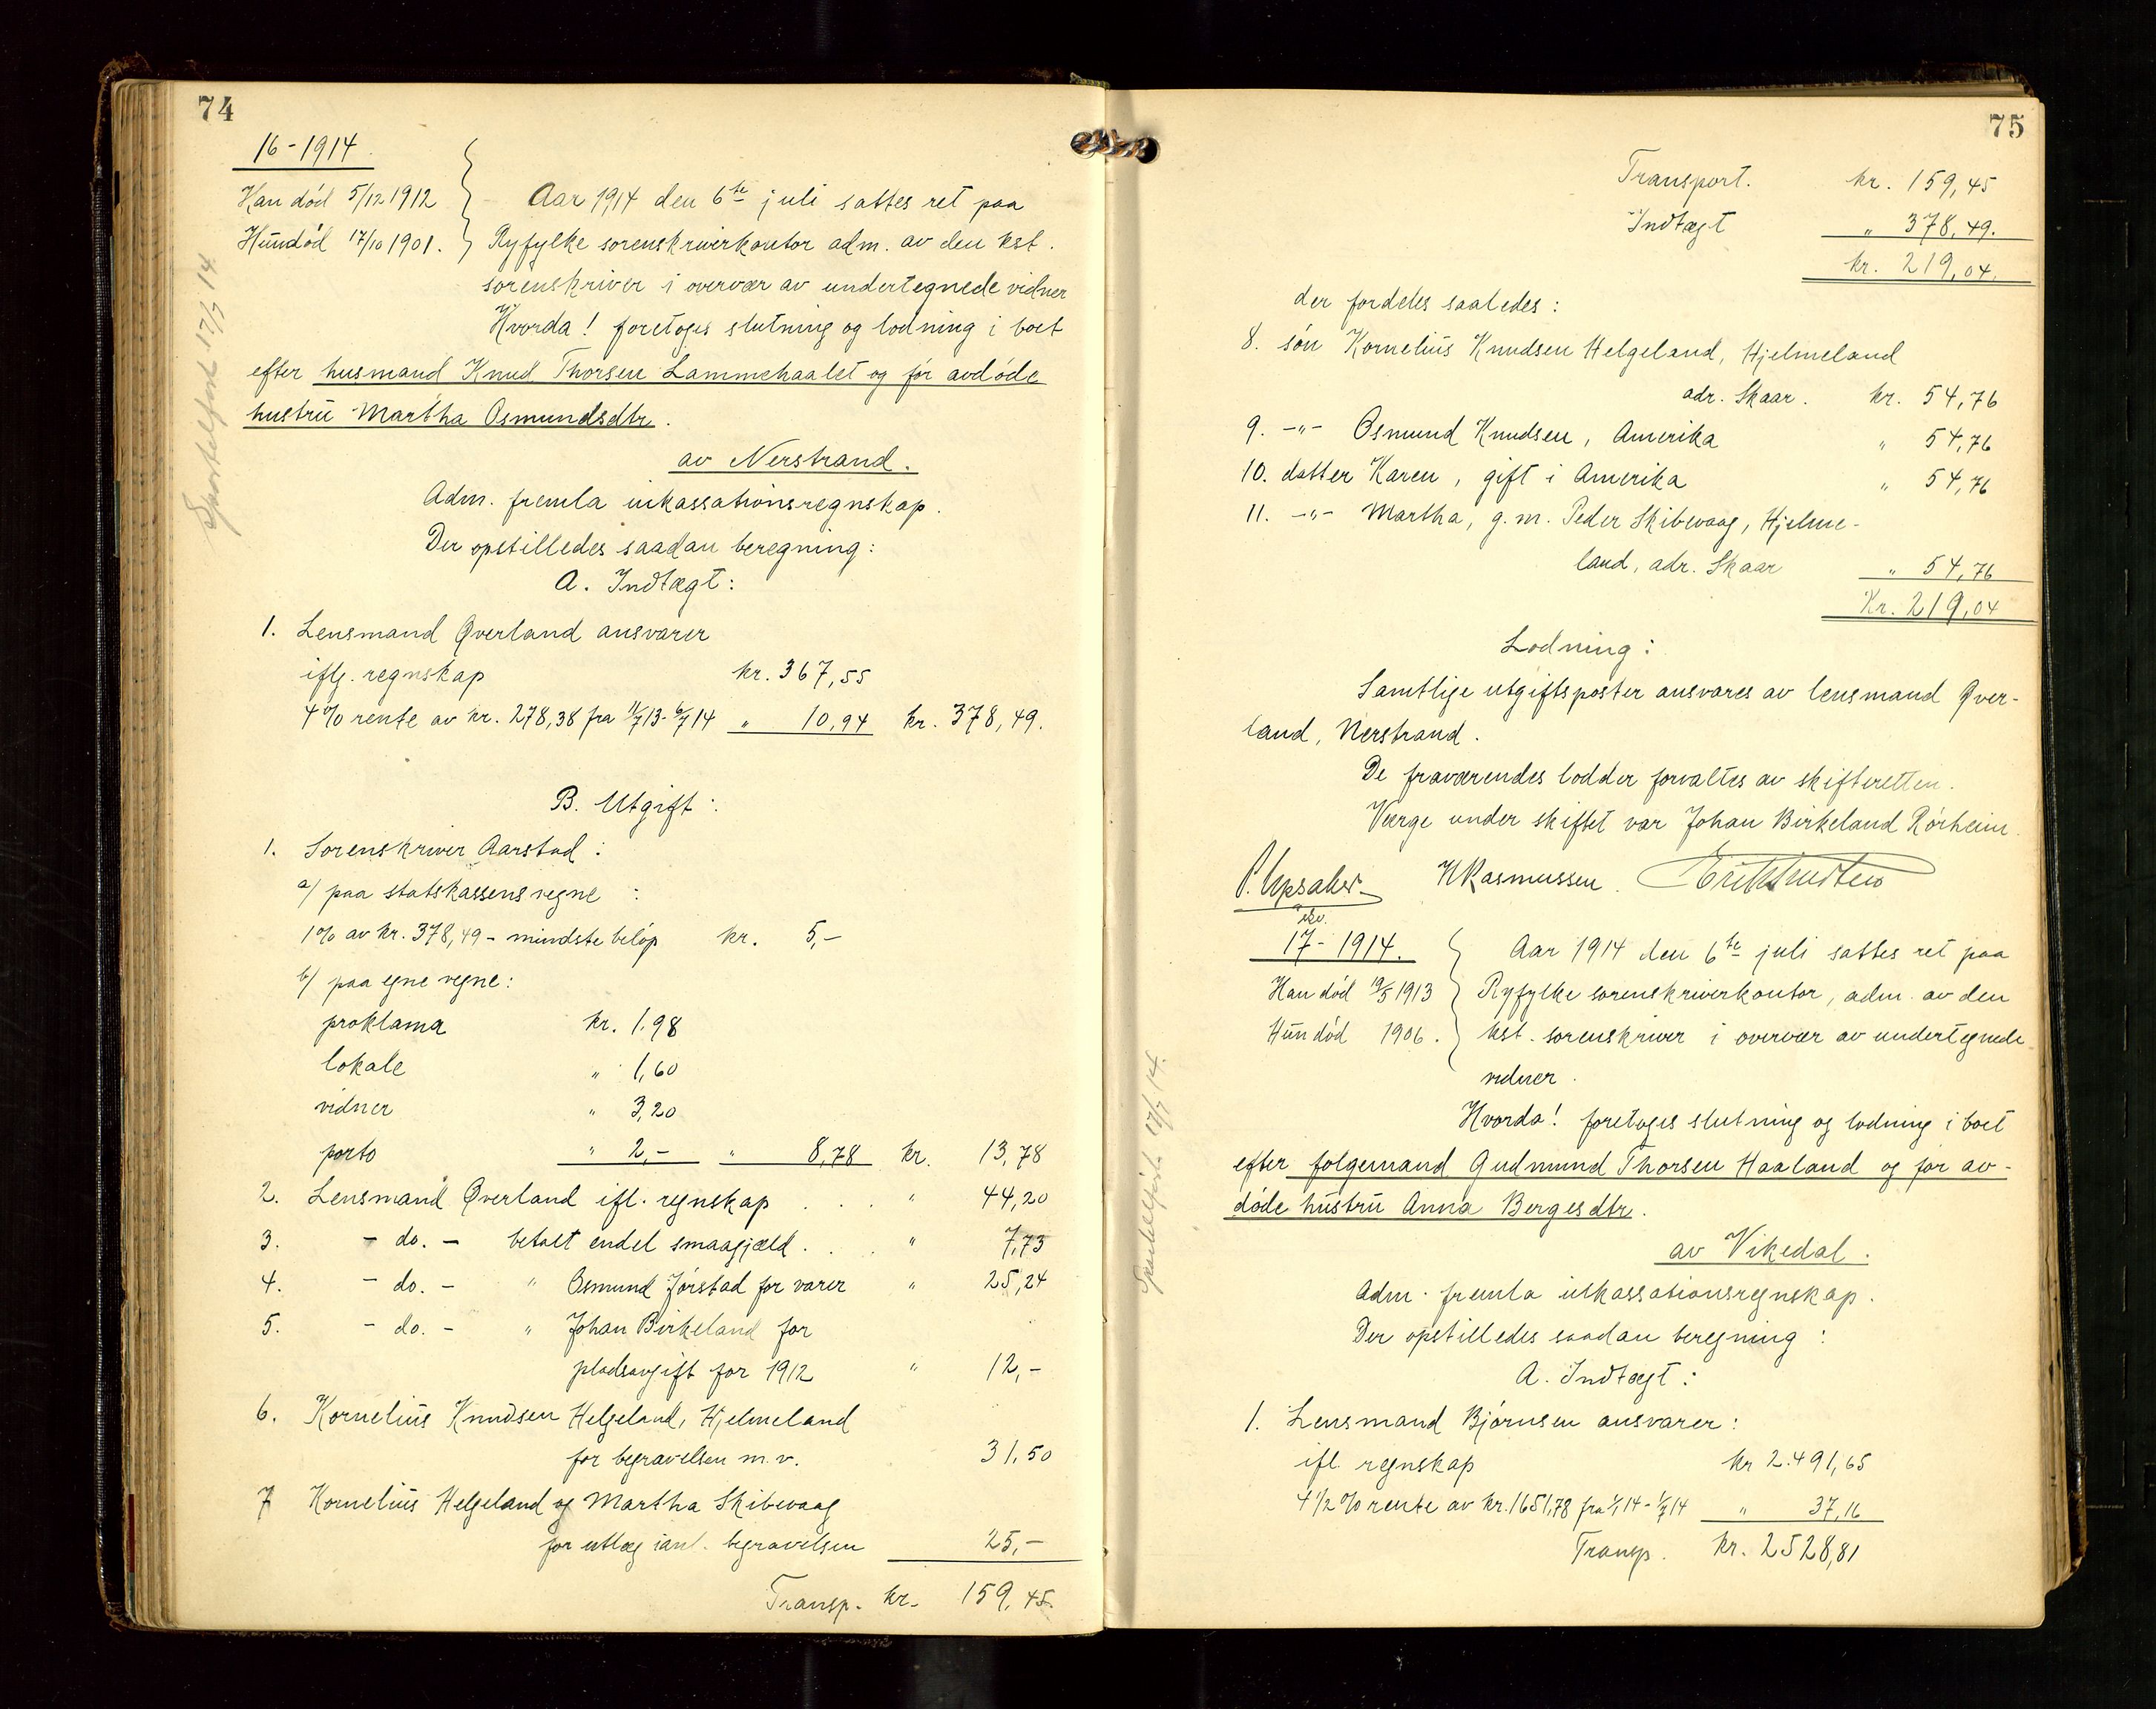 74
16 - 1914.
Han död 5/12 1912
Hun död 17/10 1901.
Sportelført 17/7 14.
Aar 1914 den 6te juli sattes ret paa
Ryfylke sorenskriverkontor adm. av den kst.
sorenskriver i overvær av undertegnede vidner
Hvorda! foretoges slutning og lodning i boet
efter husmand Knud Thorsen Lammehaalet og før avdøde
hustru Martha Osmundsdtr.
av Nerstrand.
Adm. fremla inkassationsregnskap.
Der opstilledes saadan beregning:
A. Indtægt:
1. Lensmand Øverland ansvarer
iflg. regnskap kr. 367,55
4% rente av kr. 278,38 fra 11/7 13 - 6/7 14 " 10,94 kr. 378,49.
B. Utgift:
1. Sorenskriver Aarstad:
a/ paa statskassens vegne:
1% av kr. 378,49 - mindste beløp kr. 5,-
b/ paa egne vegne:
proklama kr. 1,98
lokale " 1,60
vidner " 3,20
porto " 2,- " 8,78 kr. 13,78
2. Lensmand Øverland ifl. regnskap . . . " 44,20
3. - do. - betalt endel smaagjæld . . . " 7,73
4. - do. - " Osmund Jørstad for varer " 25,24
5. - do. - " Johan Birkeland for
pladsavgift for 1912 " 12,-
6. Kornelius Knudsen Helgeland, Hjelmeland
for begravelsen m.v. 31,50
7 Kornelius Helgeland og Martha Skibevaag
for utlæg i anl. begravelsen 25,-
Transp. kr. 159,45.
75
Transport. kr. 159,45
Indtægt " 378,49.
kr. 219,04.
der fordeles saaledes:
8. søn Kornelius Knudsen Helgeland, Hjelmeland
adr. Skaar. kr. 54,76
9. -"- Osmund Knudsen, Amerika " 54,76
10. datter Karen, gift i Amerika " 54,76
11. -"- Martha, g.m. Peder Skibevaag, Hjelme-
land, adr. Skaar " 54,76
Kr. 219,04
Lodning:
Samtlige utgiftsposter ansvares av lensmand Øver-
land, Nerstrand.
De fraværendes lodder forvaltes av skifteretten.
Værge under skiftet var Johan Birkeland Rørheim.
P. Upsaker kst. N Rasmussen.
17 - 1914.
Han död 19/5 1913
Hun död 1906.
Sportelført 17/7 14.
Aar 1914 den 6te juli sattes ret paa
Ryfylke sorenskriverkontor, adm. av den
kst. sorenskriver i overvær av undertegnede
vidner.
Hvorda! foretoges slutning og lodning i boet
efter følgemand Gudmund Thorsen Haaland og før av-
døde hustru Anna Bergesdtr.
av Vikedal.
Adm. fremla inkassationsregnskap.
Der opstilledes saadan beregning:
A. Indtægt:
1. Lensmand Bjørnsen ansvarer:
ifl. regnskap kr 2.491,65
4 1/2 % rente av kr. 1651,78 fra 1/1 14 - 1/7 14 " 37,16
Transp. kr. 2528,81